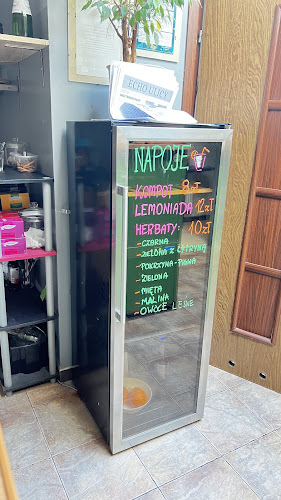 ECHO ULICY
NAPOJE
KOMPOT 8zł
LEMONIADA 12zł
HERBATY: 10zł
- CZARNA
- ZIELONA Z CYTRYNĄ
- POKRZYWA-PIGWA
- ZIELONA
- MIĘTA
- MALINA
- OWOCE LEŚNE